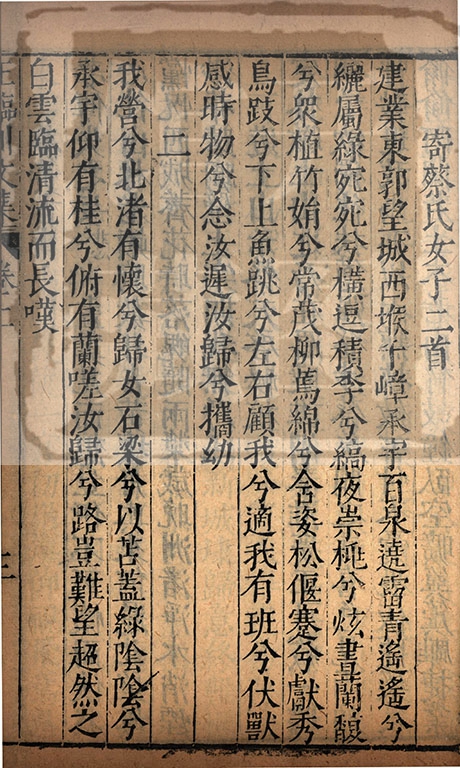 寄蔡氏女子二首
建業東郭望城西堠千嶂承宇百泉遶霤青遙遙兮
纚屬綠宛宛兮橫逗積李兮縞夜崇桃兮炫晝蘭馥
兮衆植竹娟兮常茂柳蔫綿兮含姿松偃蹇兮獻秀
鳥跂兮下上魚跳兮左右顧我兮適我有班兮伏獸
感時物兮念汝遲汝歸兮攜幼
二
我營兮北渚有懷兮歸女石梁兮以苫蓋綠陰陰兮
承宇仰有桂兮俯有蘭嗟汝歸兮路豈難望超然之
白雲臨清流而長嘆
王臨川文集
三